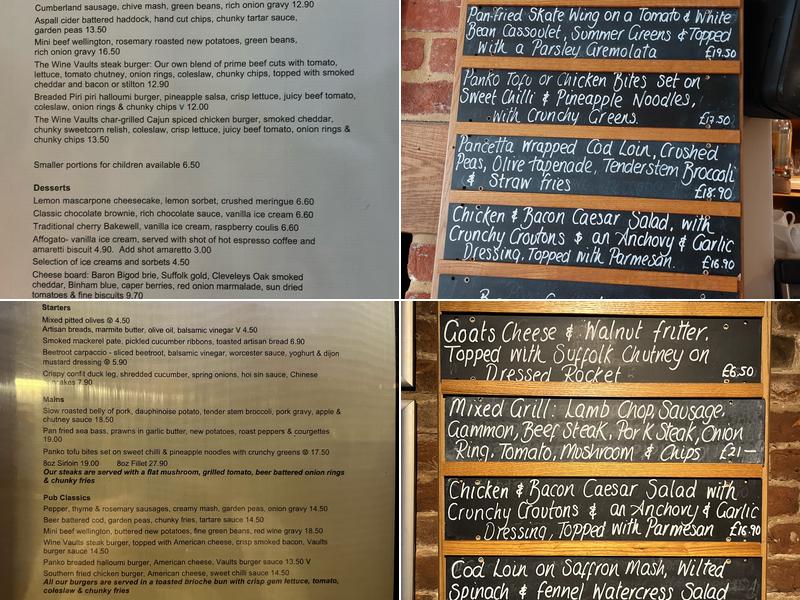 Cumberland sausage, chive mash, green beans, rich onion gravy 12.90
Aspall cider battered haddock, hand cut chips, chunky tartar sauce,
garden peas 13.50
Mini beef wellington, rosemary roasted new potatoes, green beans,
rich onion gravy 16.50
The Wine Vaults steak burger: Our own blend of prime beef cuts with tomato,
lettuce, tomato chutney, onion rings, coleslaw, chunky chips, topped with smoked
cheddar and bacon or stilton 12.90
Breaded Piri piri halloumi burger, pineapple salsa, crisp lettuce, juicy beef tomato,
coleslaw, onion rings & chunky chips V 12.00
The Wine Vaults char-grilled Cajun spiced chicken burger, smoked cheddar,
chunky sweetcorn relish, coleslaw, crisp lettuce, juicy beef tomato, onion rings &
chunky chips 13.50
Smaller portions for children available 6.50
Desserts
Lemon mascarpone cheesecake, lemon sorbet, crushed meringue 6.60
Classic chocolate brownie, rich chocolate sauce, vanilla ice cream 6.60
Traditional cherry Bakewell, vanilla ice cream, raspberry coulis 6.60
Affogato- vanilla ice cream, served with shot of hot espresso coffee and
amaretti biscuit 4.90. Add shot amaretto 3.00
Selection of ice creams and sorbets 4.50
Cheese board: Baron Bigod brie, Suffolk gold, Cleveleys Oak smoked
cheddar, Binham blue, caper berries, red onion marmalade, sun dried
tomatoes & fine biscuits 9.70
Pan-fried Skate Wing on a Tomato & White
Bean Cassoulet, Summer Greens & Topped
with a Parsley Gremolata £19.50
Panko Tofu or Chicken Bites set on
Sweet Chilli & Pineapple Noodles,
with Crunchy Greens. £17.50
Pancetta wrapped Cod Loin, Crushed
Peas, Olive tapenade, Tenderstem Broccoli
& Straw fries £18.90
Chicken & Bacon Caesar Salad, with
Crunchy Croutons & an Anchovy & Garlic
Dressing, Topped with Parmesan. £16.90
Starters
Mixed pitted olives 4.50
Artisan breads, marmite butter, olive oil, balsamic vinegar V 4.50
Smoked mackerel pate, pickled cucumber ribbons, toasted artisan bread 6.90
Beetroot carpaccio - sliced beetroot, balsamic vinegar, worcester sauce, yoghurt & dijon
mustard dressing 5.90
Crispy confit duck leg, shredded cucumber, spring onions, hoi sin sauce, Chinese
7.90
Mains
Slow roasted belly of pork, dauphinoise potato, tender stem broccoli, pork gravy, apple &
chutney sauce 18.50
Pan fried sea bass, prawns in garlic butter, new potatoes, roast peppers & courgettes
19.00
Panko tofu bites set on sweet chilli & pineapple noodles with crunchy greens 17.50
8oz Sirloin 19.00 8oz Fillet 27.90
Our steaks are served with a flat mushroom, grilled tomato, beer battered onion rings
& chunky fries
Pub Classics
Pepper, thyme & rosemary sausages, creamy mash, garden peas, onion gravy 14.50
Beer battered cod, garden peas, chunky fries, tartare sauce 14.50
Mini beef wellington, buttered new potatoes, fine green beans, red wine gravy 18.50
Wine Vaults steak burger, topped with American cheese, crisp smoked bacon, Vaults
burger sauce 14.50
Panko breaded halloumi burger, American cheese, Vaults burger sauce 13.50 V
Southern fried chicken burger, American cheese, sweet chilli sauce 14.50
All our burgers are served in a toasted brioche bun with crisp gem lettuce, tomato,
coleslaw & chunky fries
Goats Cheese & Walnut fritter.
Topped with Suffolk Chutney on
Dressed Rocket £6.50
Mixed Grill: Lamb Chop, Sausage,
Gammon, Beef Steak, Pork Steak, Onion
Ring, Tomato, Mushroom & Chips £21—
Chicken & Bacon Caesar Salad with
Crunchy Croutons & an Anchovy & Garlic
Dressing, Topped with Parmesan £16.90
Cod Loin on Saffron Mash, Wilted
Spinach & fennel Watercress Salad